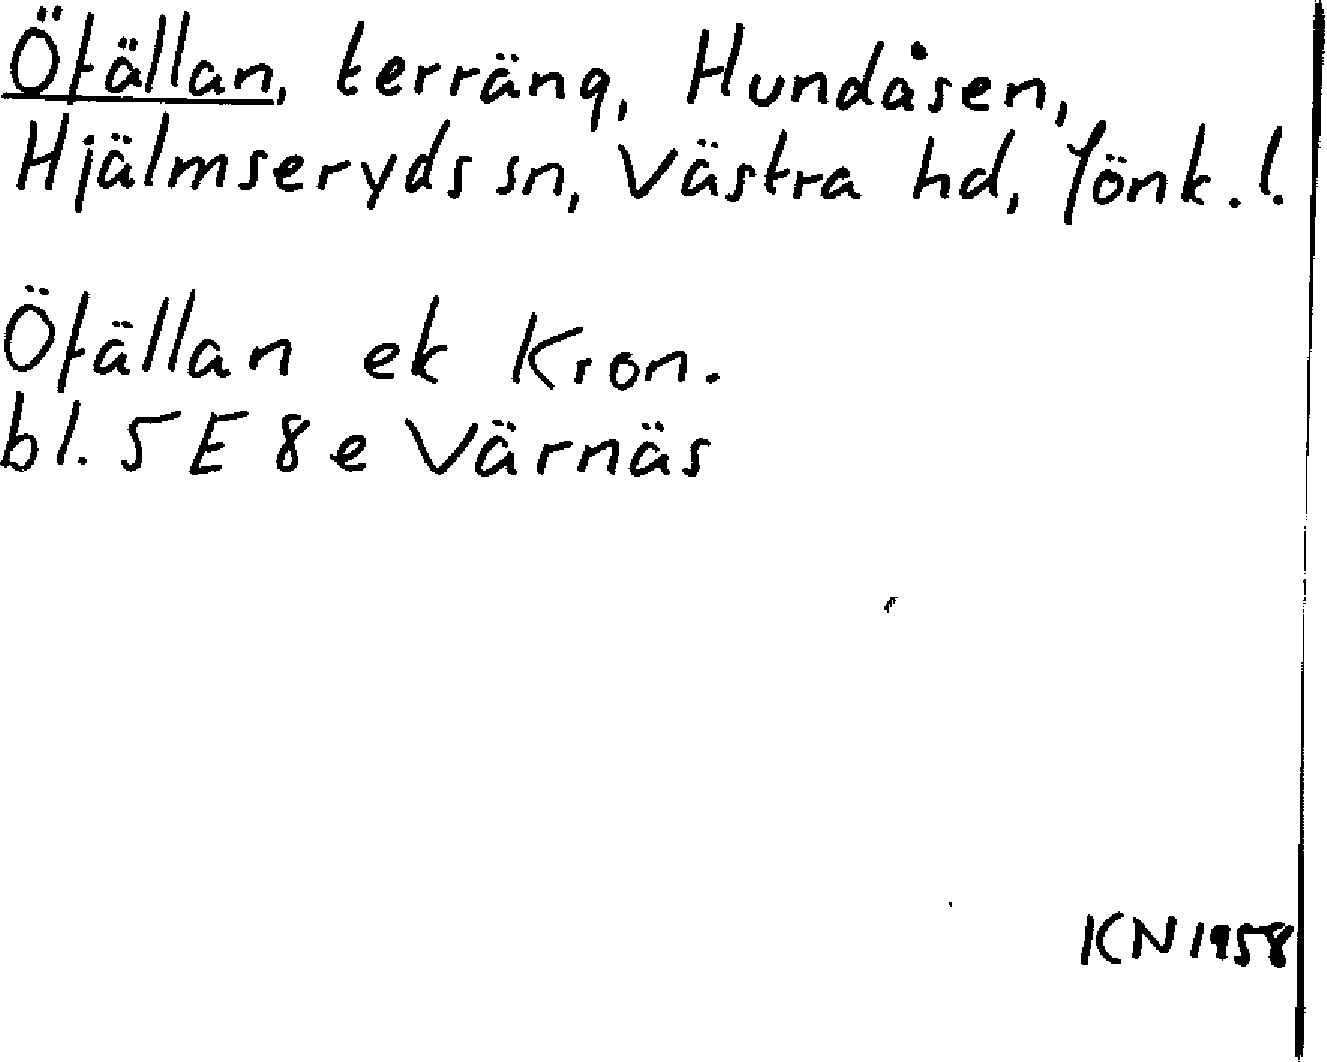 Öfällan, terräng, Hundåsen,
Hjälmseryds sn, Västra hd, Jönk. l.
Öfällan ek Kron.
bl. 5 E 8 e Värnäs
KN 1958